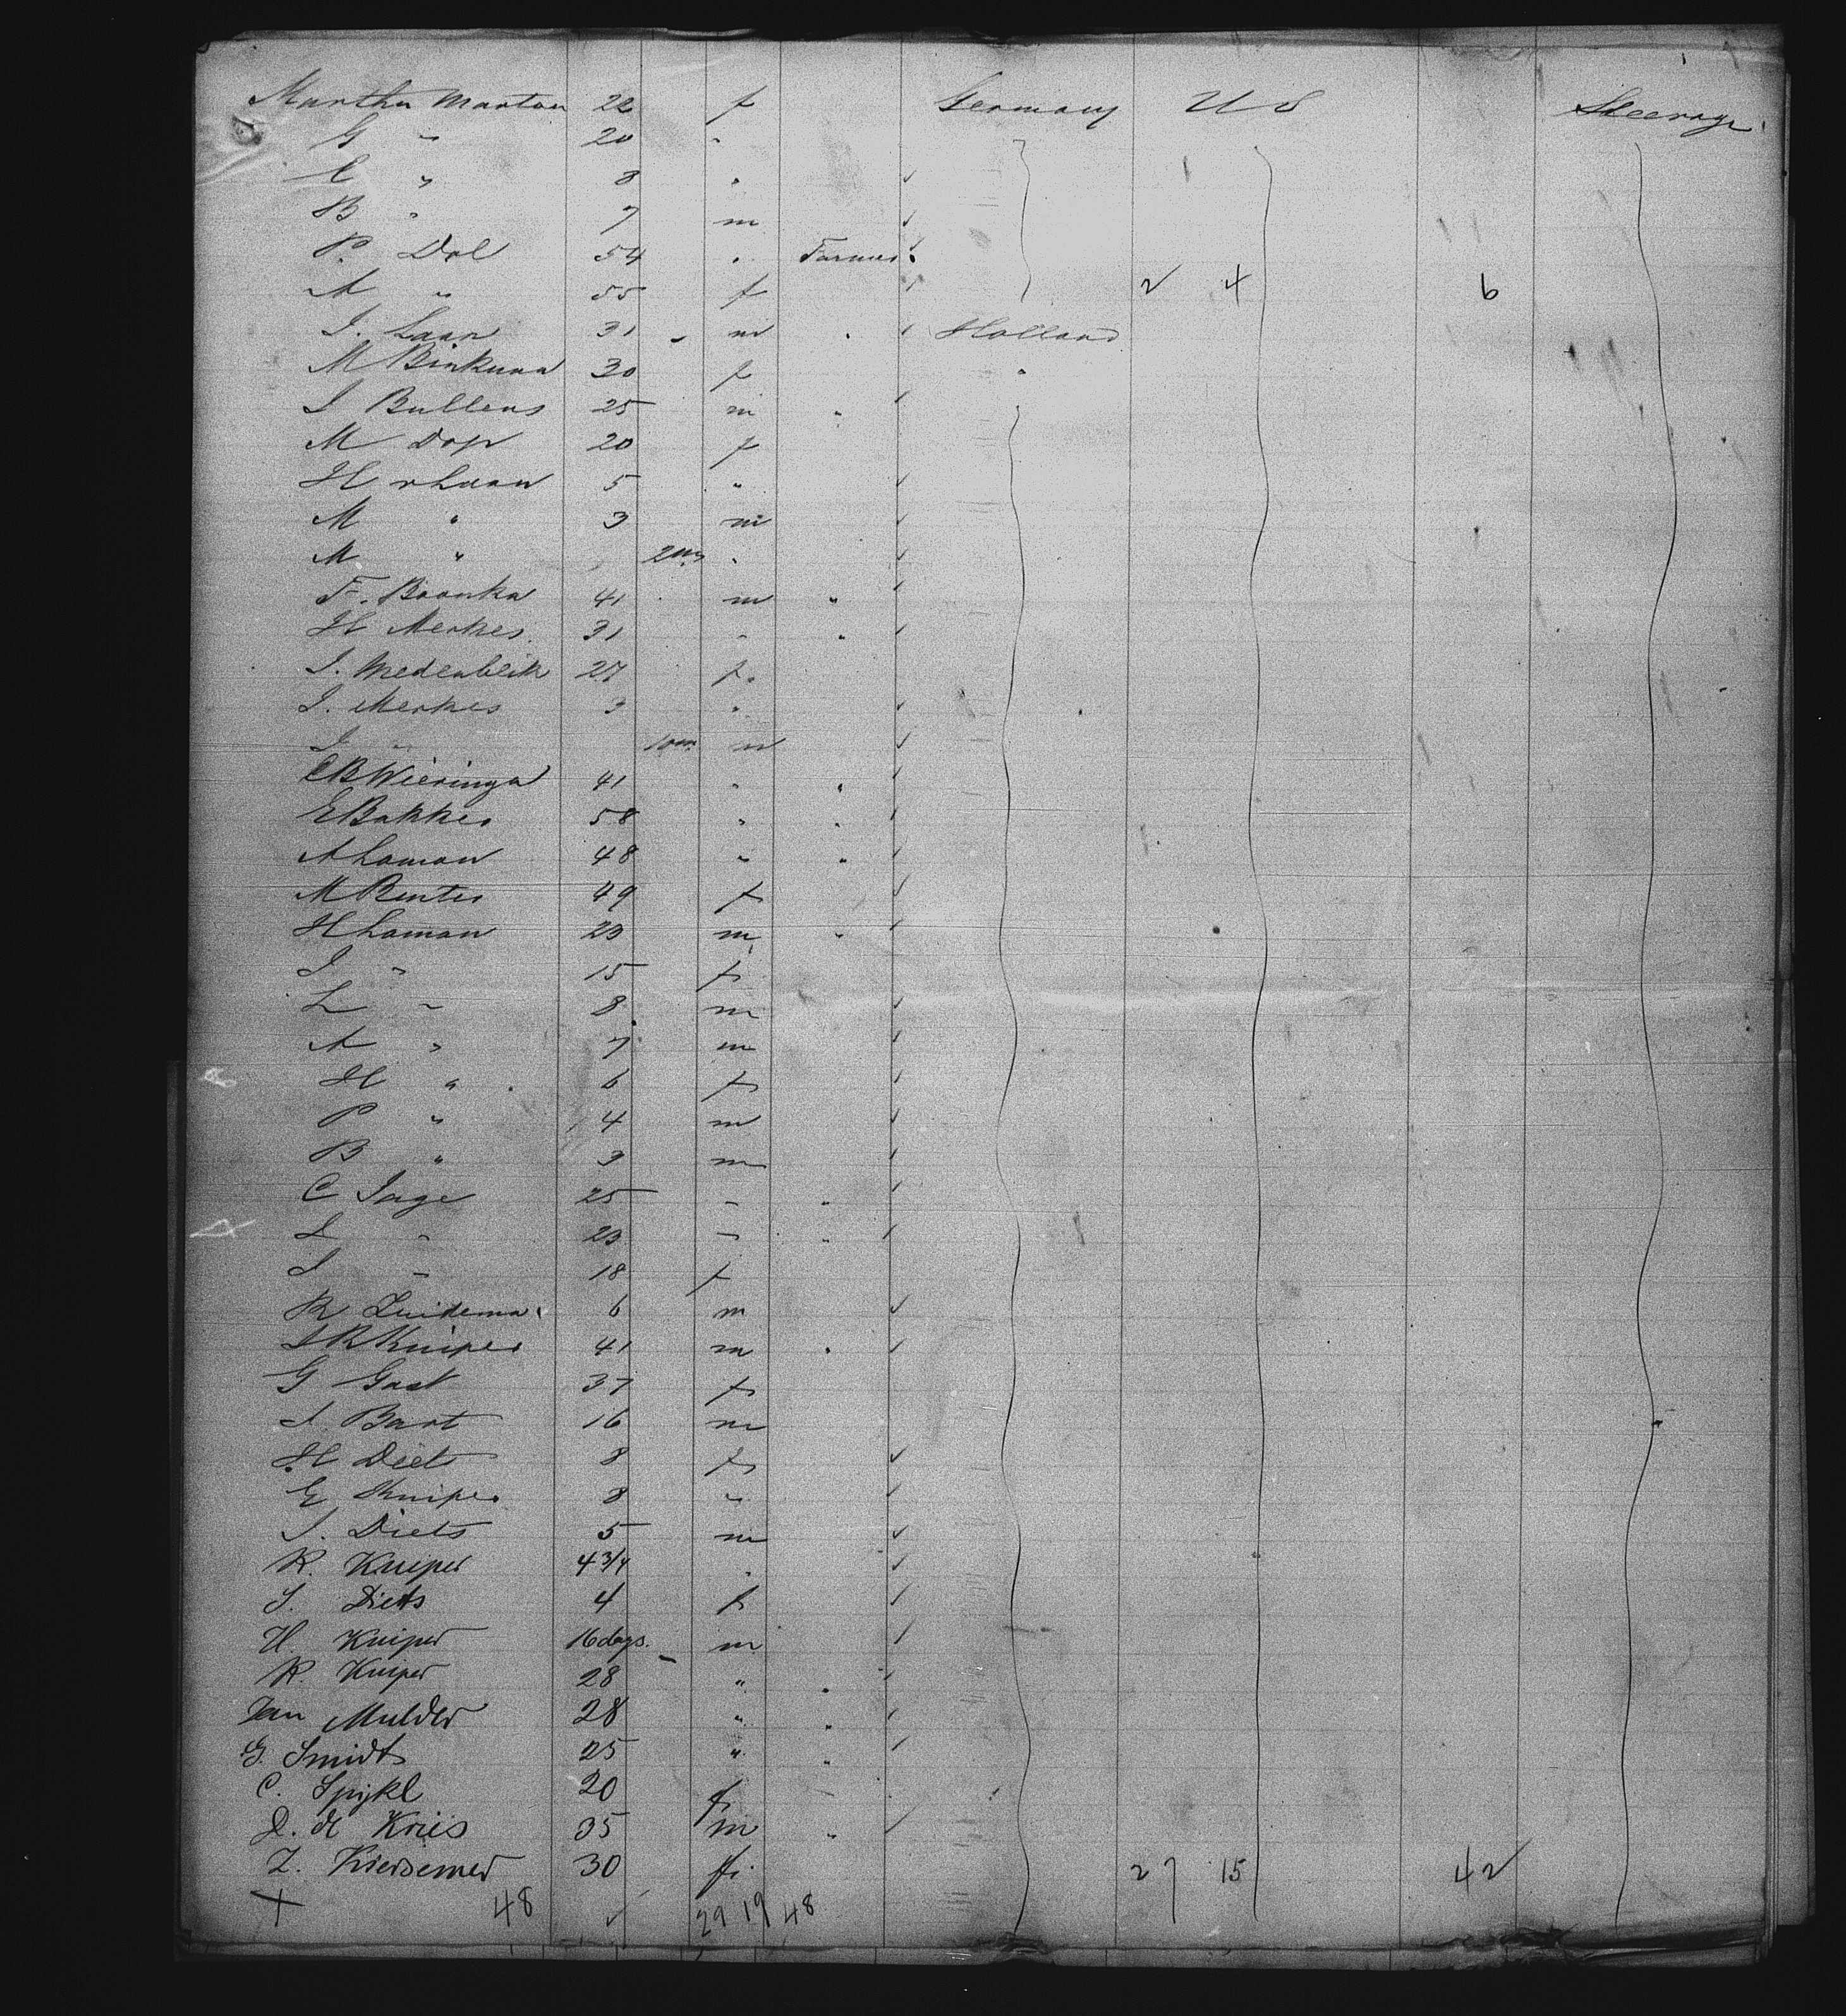 Martha Marton 22 f Germany U S Steerage
G " 20 "
C " 8 "
B " 7 m
P. Dol 54 " Farmer
A " 55 f 2 4 6
I. Laan 31 m " Holland
M Binkuna 30 f "
I Bullens 25 m " "
M Dop 20 f
H v Laan 5 "
M " 3 m
M " 2 ms "
F. Boonka 41 m "
H Merkes 31 " "
I. Medenblik 27 f.
I. Merkes 3 "
I " 10 m. m
C B Wieringa 41 " "
E Bakker 58 " "
A Laman 48 " "
M Renter 49 f
H Laman 23 m "
I " 15 f
L " 8 m
A " 7 m
H " 6 f
P " 4 m
B " 3 m
C Inge 25 " "
L " 23 " "
I " 18 f
R Zuidema 6 m
I R Kuiper 41 m "
G Gast 37 f
I. Bart 16 m
H Diets 8 f
E Kuiper 8 "
I. Diets 5 m
R. Kuiper 4 3/4 "
I. Diets 4 f
H. Kuiper 16 days. m
R. Kuiper 28 " "
Jan Mulder 28 " "
G. Smidt 25 " "
C. Spijkl 20 f
D. de Kries 35 m "
Z. Kiersemer 30 f. 27 15 42
48 29 19 48